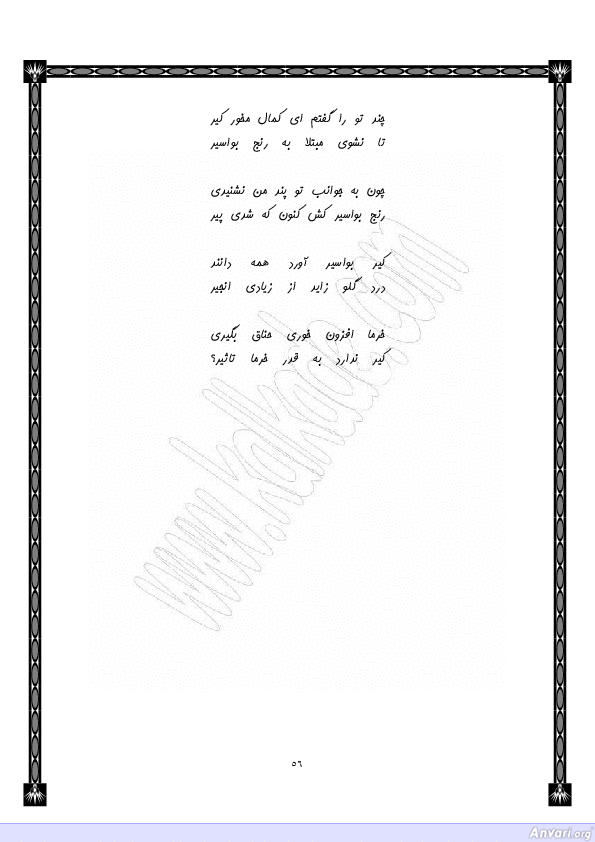 چند تو را گفتم ای کمال مخور کیر
تا نشوی مبتلا به رنج بواسیر
چون به جوانب تو پند من نشنیدی
رنج بواسیر کش کنون که شدی پیر
کیر بواسیر آورد همه دانند
درد گلو زاید از زیادی انجیر
خرما افزون خوری خناق بگیری
کیر ندارد به قدر خرما تاثیر؟
www.kalkade.com
٥٦
Anvari.org